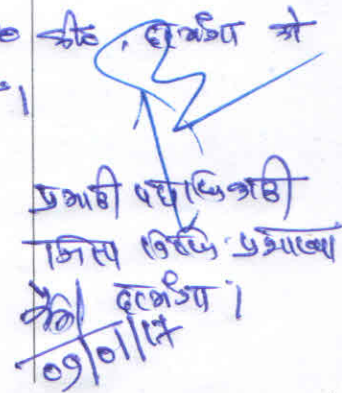 दरभंगा को
प्रभारी पदाधिकारी
जिला विधि प्रशाखा
दरभंगा।
09/01/17